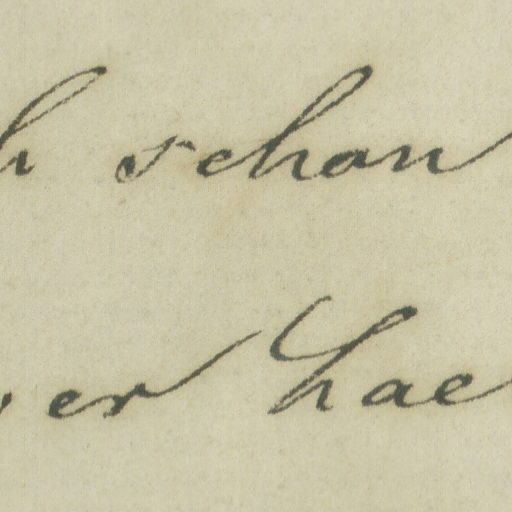 h schan
er hae